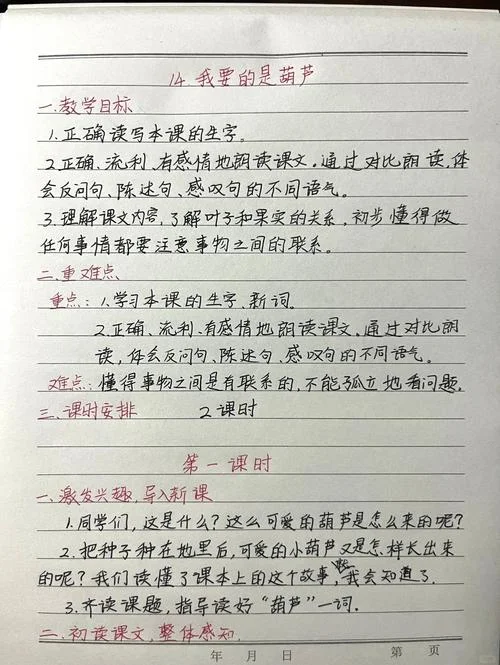 14.我要的是葫芦
一.教学目标
1.正确读写本课的生字。
2.正确、流利、有感情地朗读课文。通过对比朗读,体
会反问句、陈述句、感叹句的不同语气。
3.理解课文内容,了解叶子和果实的关系,初步懂得做
任何事情都要注意事物之间的联系。
二.重难点
重点:1.学习本课的生字、新词。
2.正确、流利、有感情地朗读课文。通过对比朗
读,体会反问句、陈述句、感叹句的不同语气。
难点:懂得事物之间是有联系的,不能孤立地看问题。
三.课时安排 2课时
第一课时
一、激发兴趣,导入新课
1.同学们,这是什么?这么可爱的葫芦是怎么来的呢?
2.把种子种在地里后,可爱的小葫芦又是怎样长出来
的呢?我们读懂了课本上的这个故事,我会知道了.
3.齐读课题,指导读好“葫芦”一词.
二.初读课文,整体感知.
年 月 日 第 页